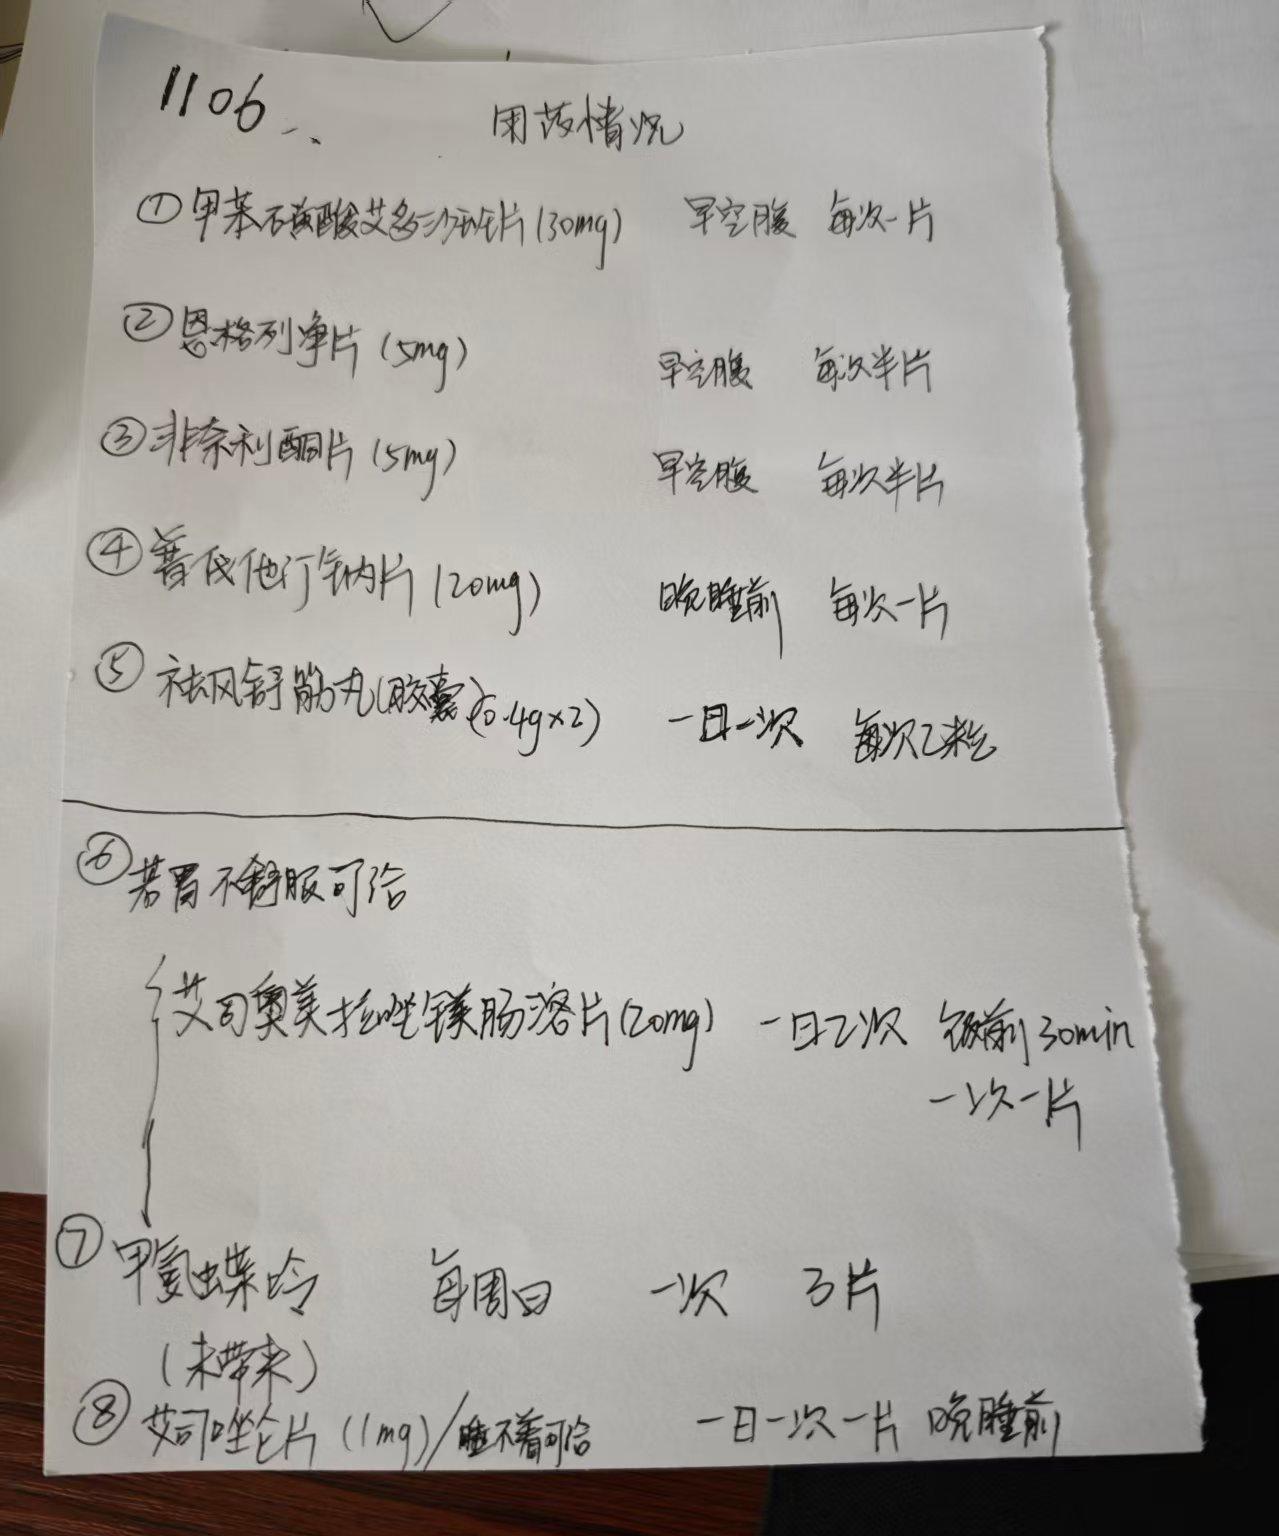 1106
用药情况
①甲苯磺酸艾多沙班片(30mg) 早空腹 每次一片
②恩格列净片(5mg) 早空腹 每次半片
③非奈利酮片(5mg) 早空腹 每次半片
④普伐他汀钠片(20mg) 晚睡前 每次一片
⑤祛风舒筋丸(胶囊)(0.4g×2) 一日一次 每次2粒
⑥若胃不舒服可给
艾司奥美拉唑镁肠溶片(20mg) 一日2次 饭前30min
一次一片
⑦甲氨蝶呤 每周日 一次 3片
(未带来)
⑧艾司唑仑片(1mg)/睡不着可给 一日一次一片 晚睡前